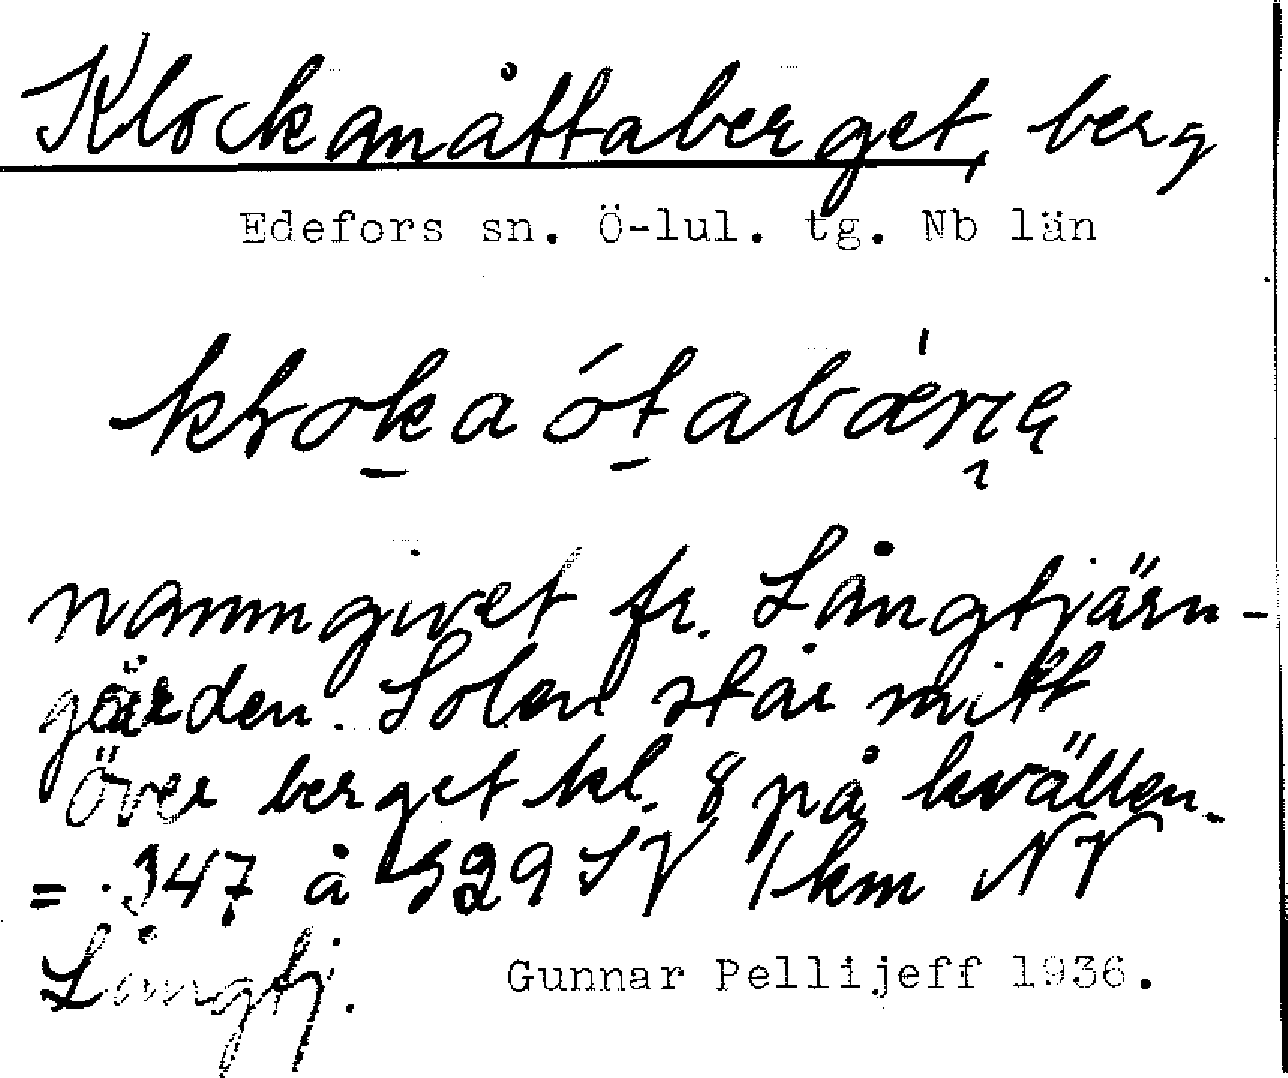 Klockgnåttaberget, berg
Edefors sn. Ö-lul. tg. Nb län
namngivet fr. Långtjärn-
gården. Solen står mitt
över berget kl. 8 på kvällen.
= 347 å S29 SV 1 km NV
Långtj. Gunnar Pellijeff 1936.